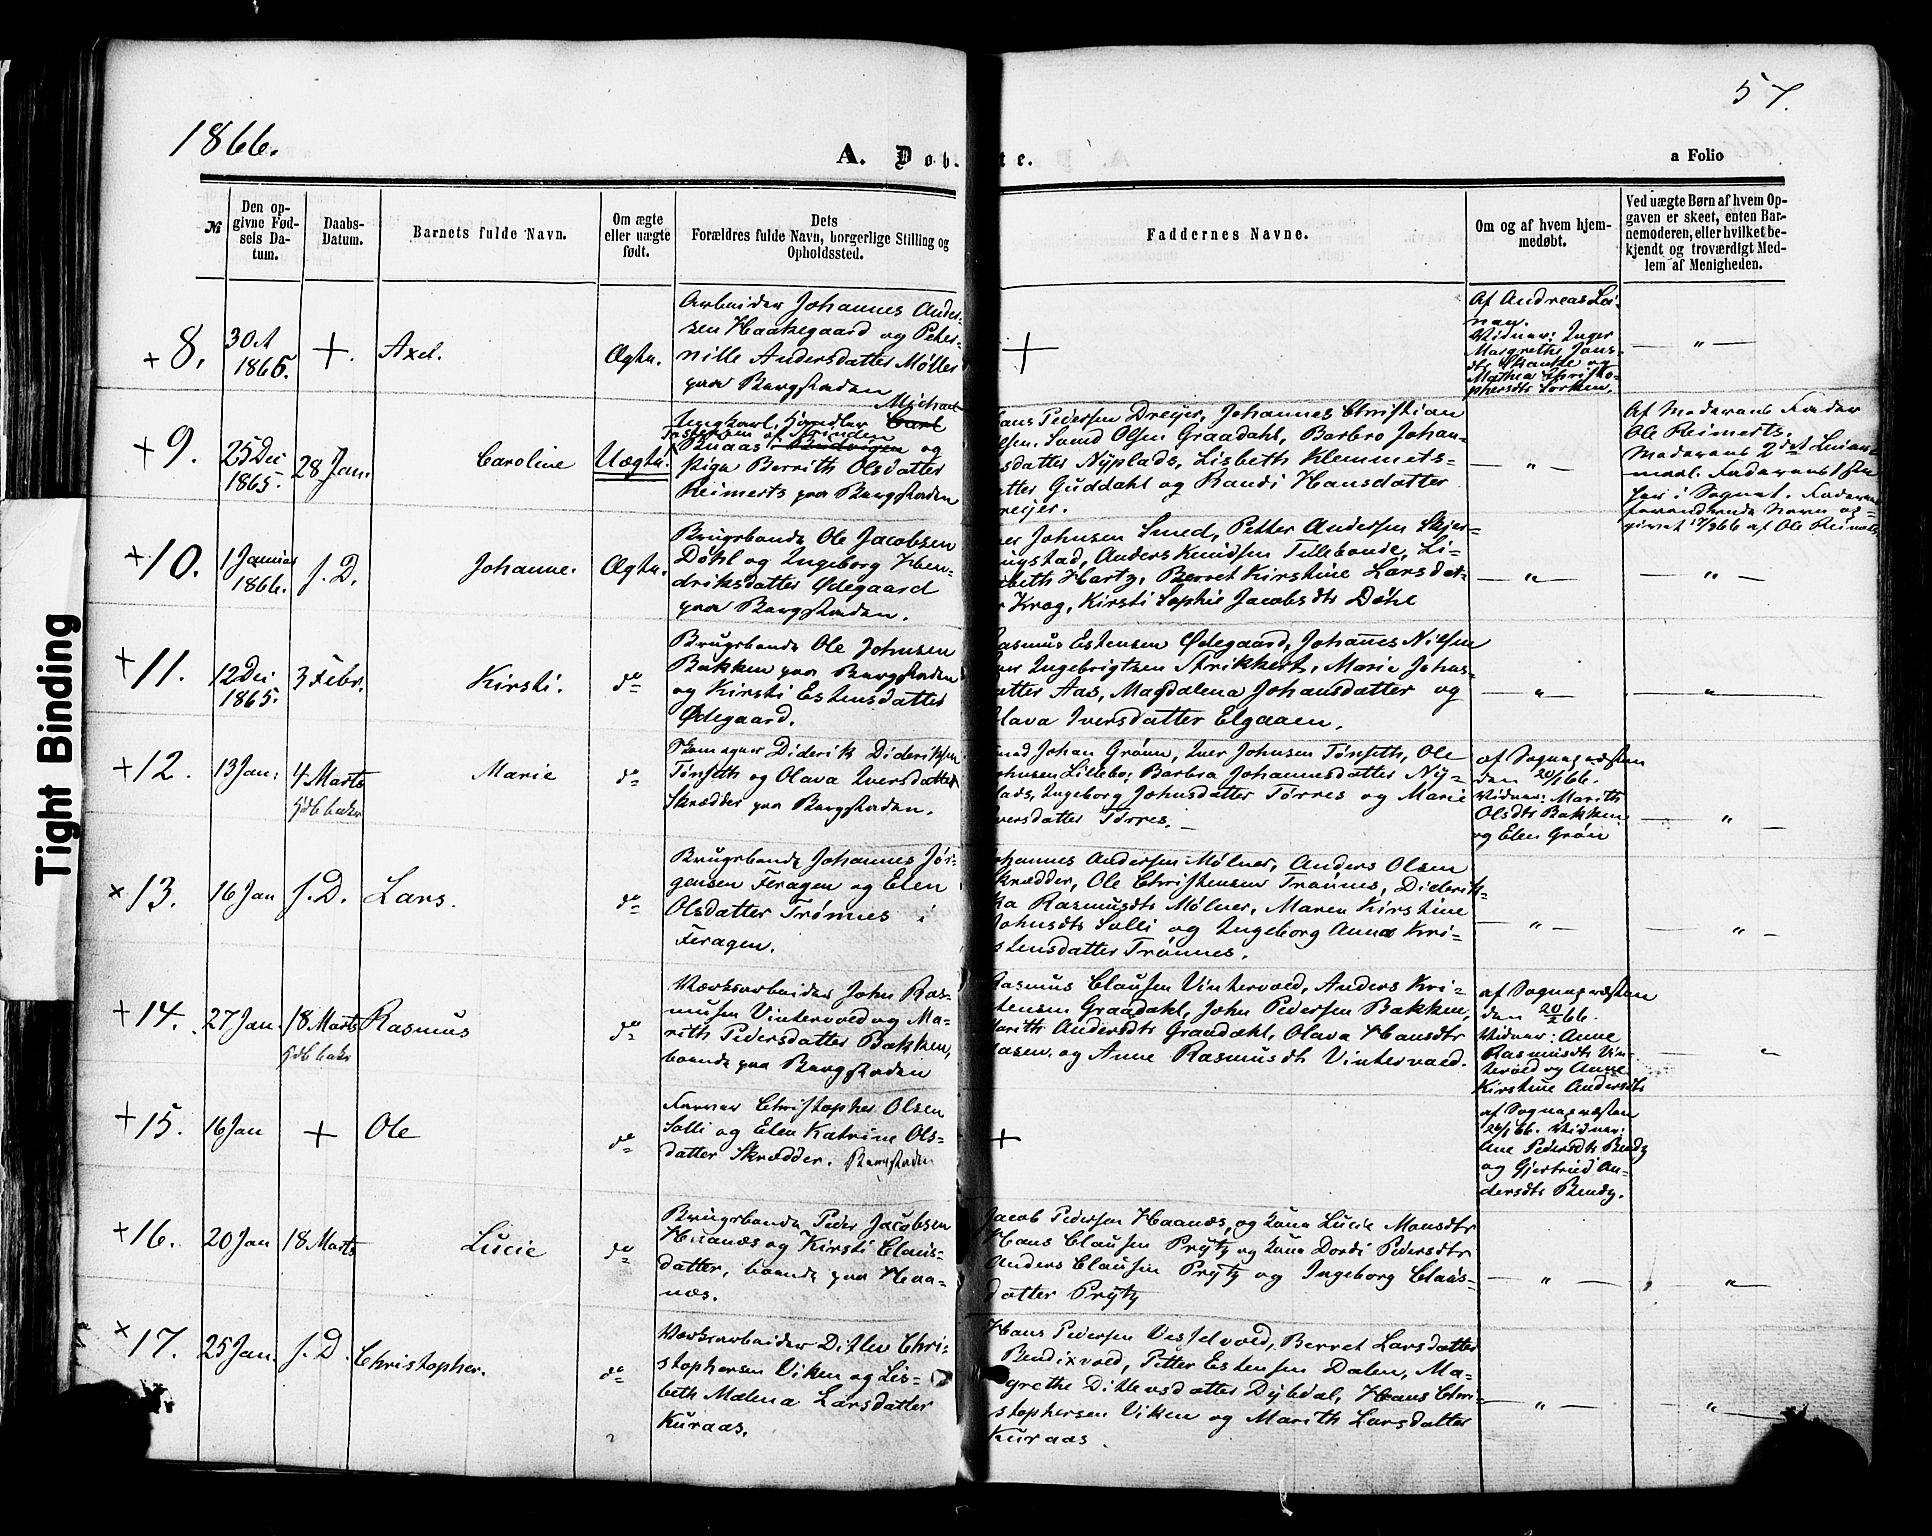 57.
1866.
A. Døb te.
a Folio
№
Den op-
givne Fød-
sels Da-
tum.
Daabs-
Datum.
Barnets fulde Navn.
Om ægte
eller uægte
født.
Dets
Forældres fulde Navn, borgerlige Stilling og
Opholdssted.
Faddernes Navne.
Om og af hvem hjem-
medøbt.
Ved uægte Børn af hvem Op-
gaven er skeet, enten Bar-
nemoderen, eller hvilket be-
kjendt og troværdigt Med-
lem af Menigheden.
+ 8.
1865.
+.
Axel.
Ægte.
Arbeider Johannes Ander-
sen Haakegaard og Peter-
nille Andersdatter Møller
paa Bergstaden
+
Af Andreas
Vidner: Inger
Margrethe Jons-
og
Mathea Christo-
phersdtr
— " —
+ 9.
25 Dec
1865.
28 Jan.
Caroline
Uægte.
Ungkarl, Michael
og
Pige Berrith Olsdatter
Reimerts paa Bergstaden
ans Pedersen Dreyer, Johannes Christian
lsen, Svend Olsen Graadahl, Barbro Johan-
sdatter Nyplads, Lisbeth Klemmets-
atter Guddahl og Randi Hansdatter
reyer.
— " —
Af Moderens Fader
Ole Reimerts.
Moderens 2det Leier-
maal. Faderens 1ste
her i Sognet. Faderens
forandrede Navn op-
givet af Ole Reimerts
+ 10.
1 Januar
1866.
J. D.
Johanne.
Ægte.
Brugsbonde Ole Jacobsen
Døhl og Ingeborg Hen-
driksdatter Ødegaard
paa Bergstaden.
er Johnsen Smed, Petter Andersen Skjer-
ngstad, Anders Knudsen Tillebonde, Li-
beth Hartz, Berret Kirstine Larsdat-
r Krog, Kirsti Sophie Jacobsdtr Døhl
— " —
— " —
+ 11.
12 Dec
1865.
3 Febr.
Kirsti.
do
Brugsbonde Ole Johnsen
Bakken paa Bergstaden
og Kirsti Estensdatter
Ødegaard.
asmus Estensen Ødegaard, Johannes Nilsen
ver Ingebrigtsen Strikkert, Marie Johns-
atter Aas, Magdalena Johansdatter og
lava Iversdatter Elgaaen.
— " —
— " —
+ 12.
13 Jan:
4 Marts
Hjdb bekr
Marie
do
Skomager Diderik Dideriksen
Tønseth og Olava Iversdatter
Skrædder paa Bergstaden.
mad Johan Grønn, Iver Johnsen Tønseth, Ole
ohnsen Lillebo, Barbra Johannesdatter Ny-
lads, Ingeborg Johnsdatter Tørres og Marie
versdatter Tørres.
af Sognepresten
den 20/1 66.
Vidner: Marith
Olsdtr Bakken
og Elen Grøn
— " —
x 13.
16 Jan
J. D.
Lars.
do
Brugsbonde Johannes Jør-
gensen Feragen og Elen
Olsdatter Trønnes i
Feragen.
ohannes Andersen Mølner, Anders Olsen
Skrædder, Ole Christensen Trønnes, Diderik-
ka Rasmusdtr Mølner, Maren Kirstine
Johnsdtr Solli og Ingeborg Anna Kri-
stensdatter Trønnes.
— " —
— " —
+ 14.
27 Jan
18 Marts
Hjdb bekr
Rasmus
do
Værksarbeider John Ras-
musen Vintervold og Ma-
rith Pedersdatter Bakken,
boende paa Bergstaden
Rasmus Clausen Vintervold, Anders Kri-
stensen Graadahl, John Pedersen Bakken,
Marith Andersdtr Graadahl, Olava Hansdtr
aasen og Anne Rasmusdt Vintervold.
af Sognepresten
den 20/2 66.
Vidner: Anne
Rasmusdtr Vin-
tervold og Anne
Kirstine Andersdtr
— "
+ 15.
16 Jan
+
Ole
do
Farver Christopher Olsen
Solli og Elen Katrine Ols-
datter Skrædder. Bergstaden
+
af Sognepresten
20/1 66. Vidner:
Ane Pedersdtr Bendz
og Gjertrud An-
dersdtr Bendz.
+ 16.
20 Jan
18 Marts
Lucie
do
Brugsbonde Peder Jacobsen
Haanæs og Kirsti Claus-
datter, boende paa Haa-
næs.
Jacob Pedersen Haanæs, og Kone Lucie Monsdtr
Hans Clausen Prytz og Kone Dordi Pedersdtr
Anders Clausen Prytz og Ingeborg Claus-
datter Prytz
— " —
"
x 17.
25 Jan.
J. D.
Christopher.
do
Værksarbeider Ditlev Chri-
stophersen Viken og Lis-
beth Malena Larsdatter
Kuraas.
Hans Pedersen Vesselvold, Berret Larsdatter
Bendixvold, Petter Estensen Dalen, Ma-
grethe Ditlevsdatter Dybdal, Hans Chri-
stophersen Viken og Marith Larsdatter
Kuraas.
— " —
— " —
Tight Binding